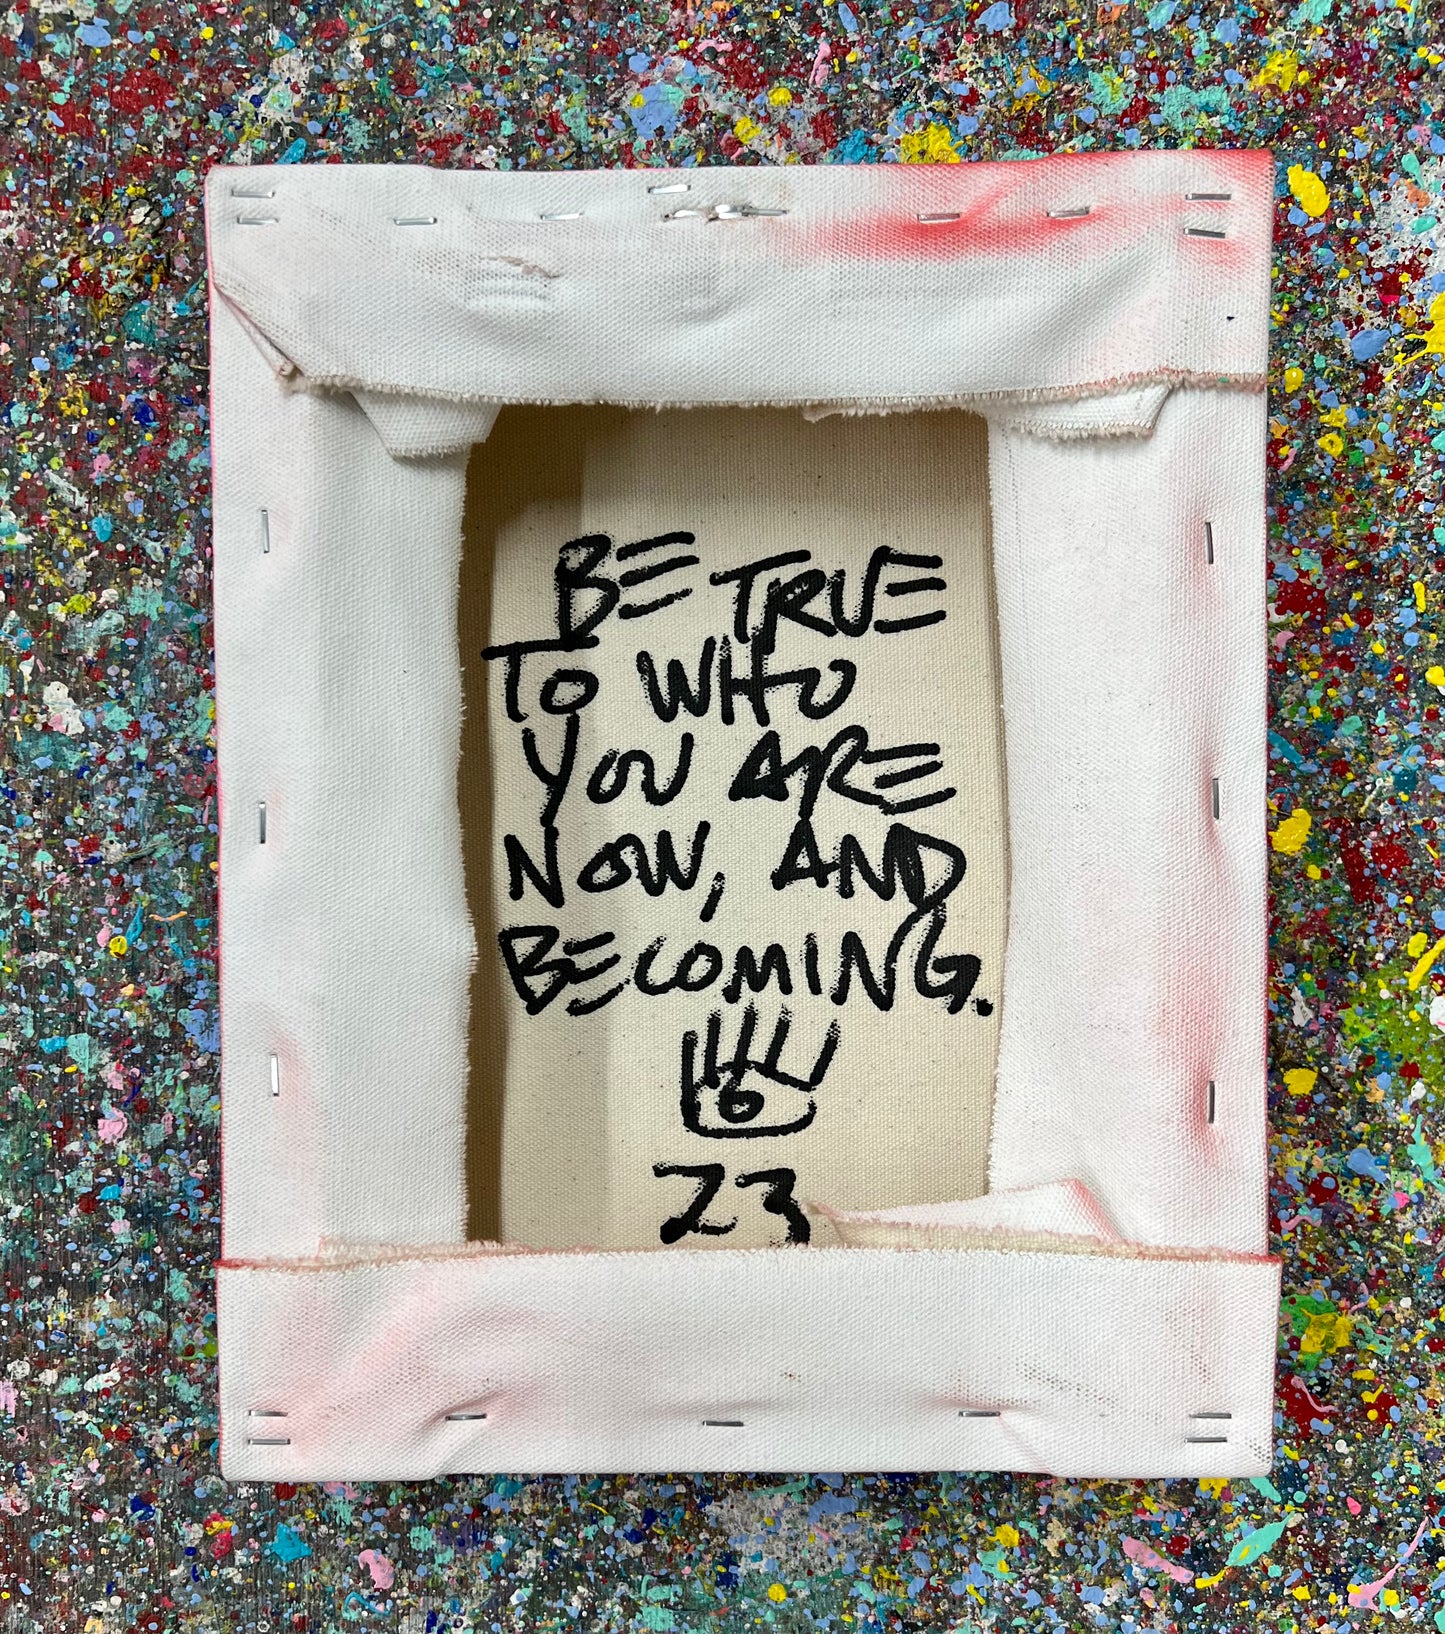 BE TRUE
TO WHO
YOU ARE
NOW, AND
BECOMING.
6
23